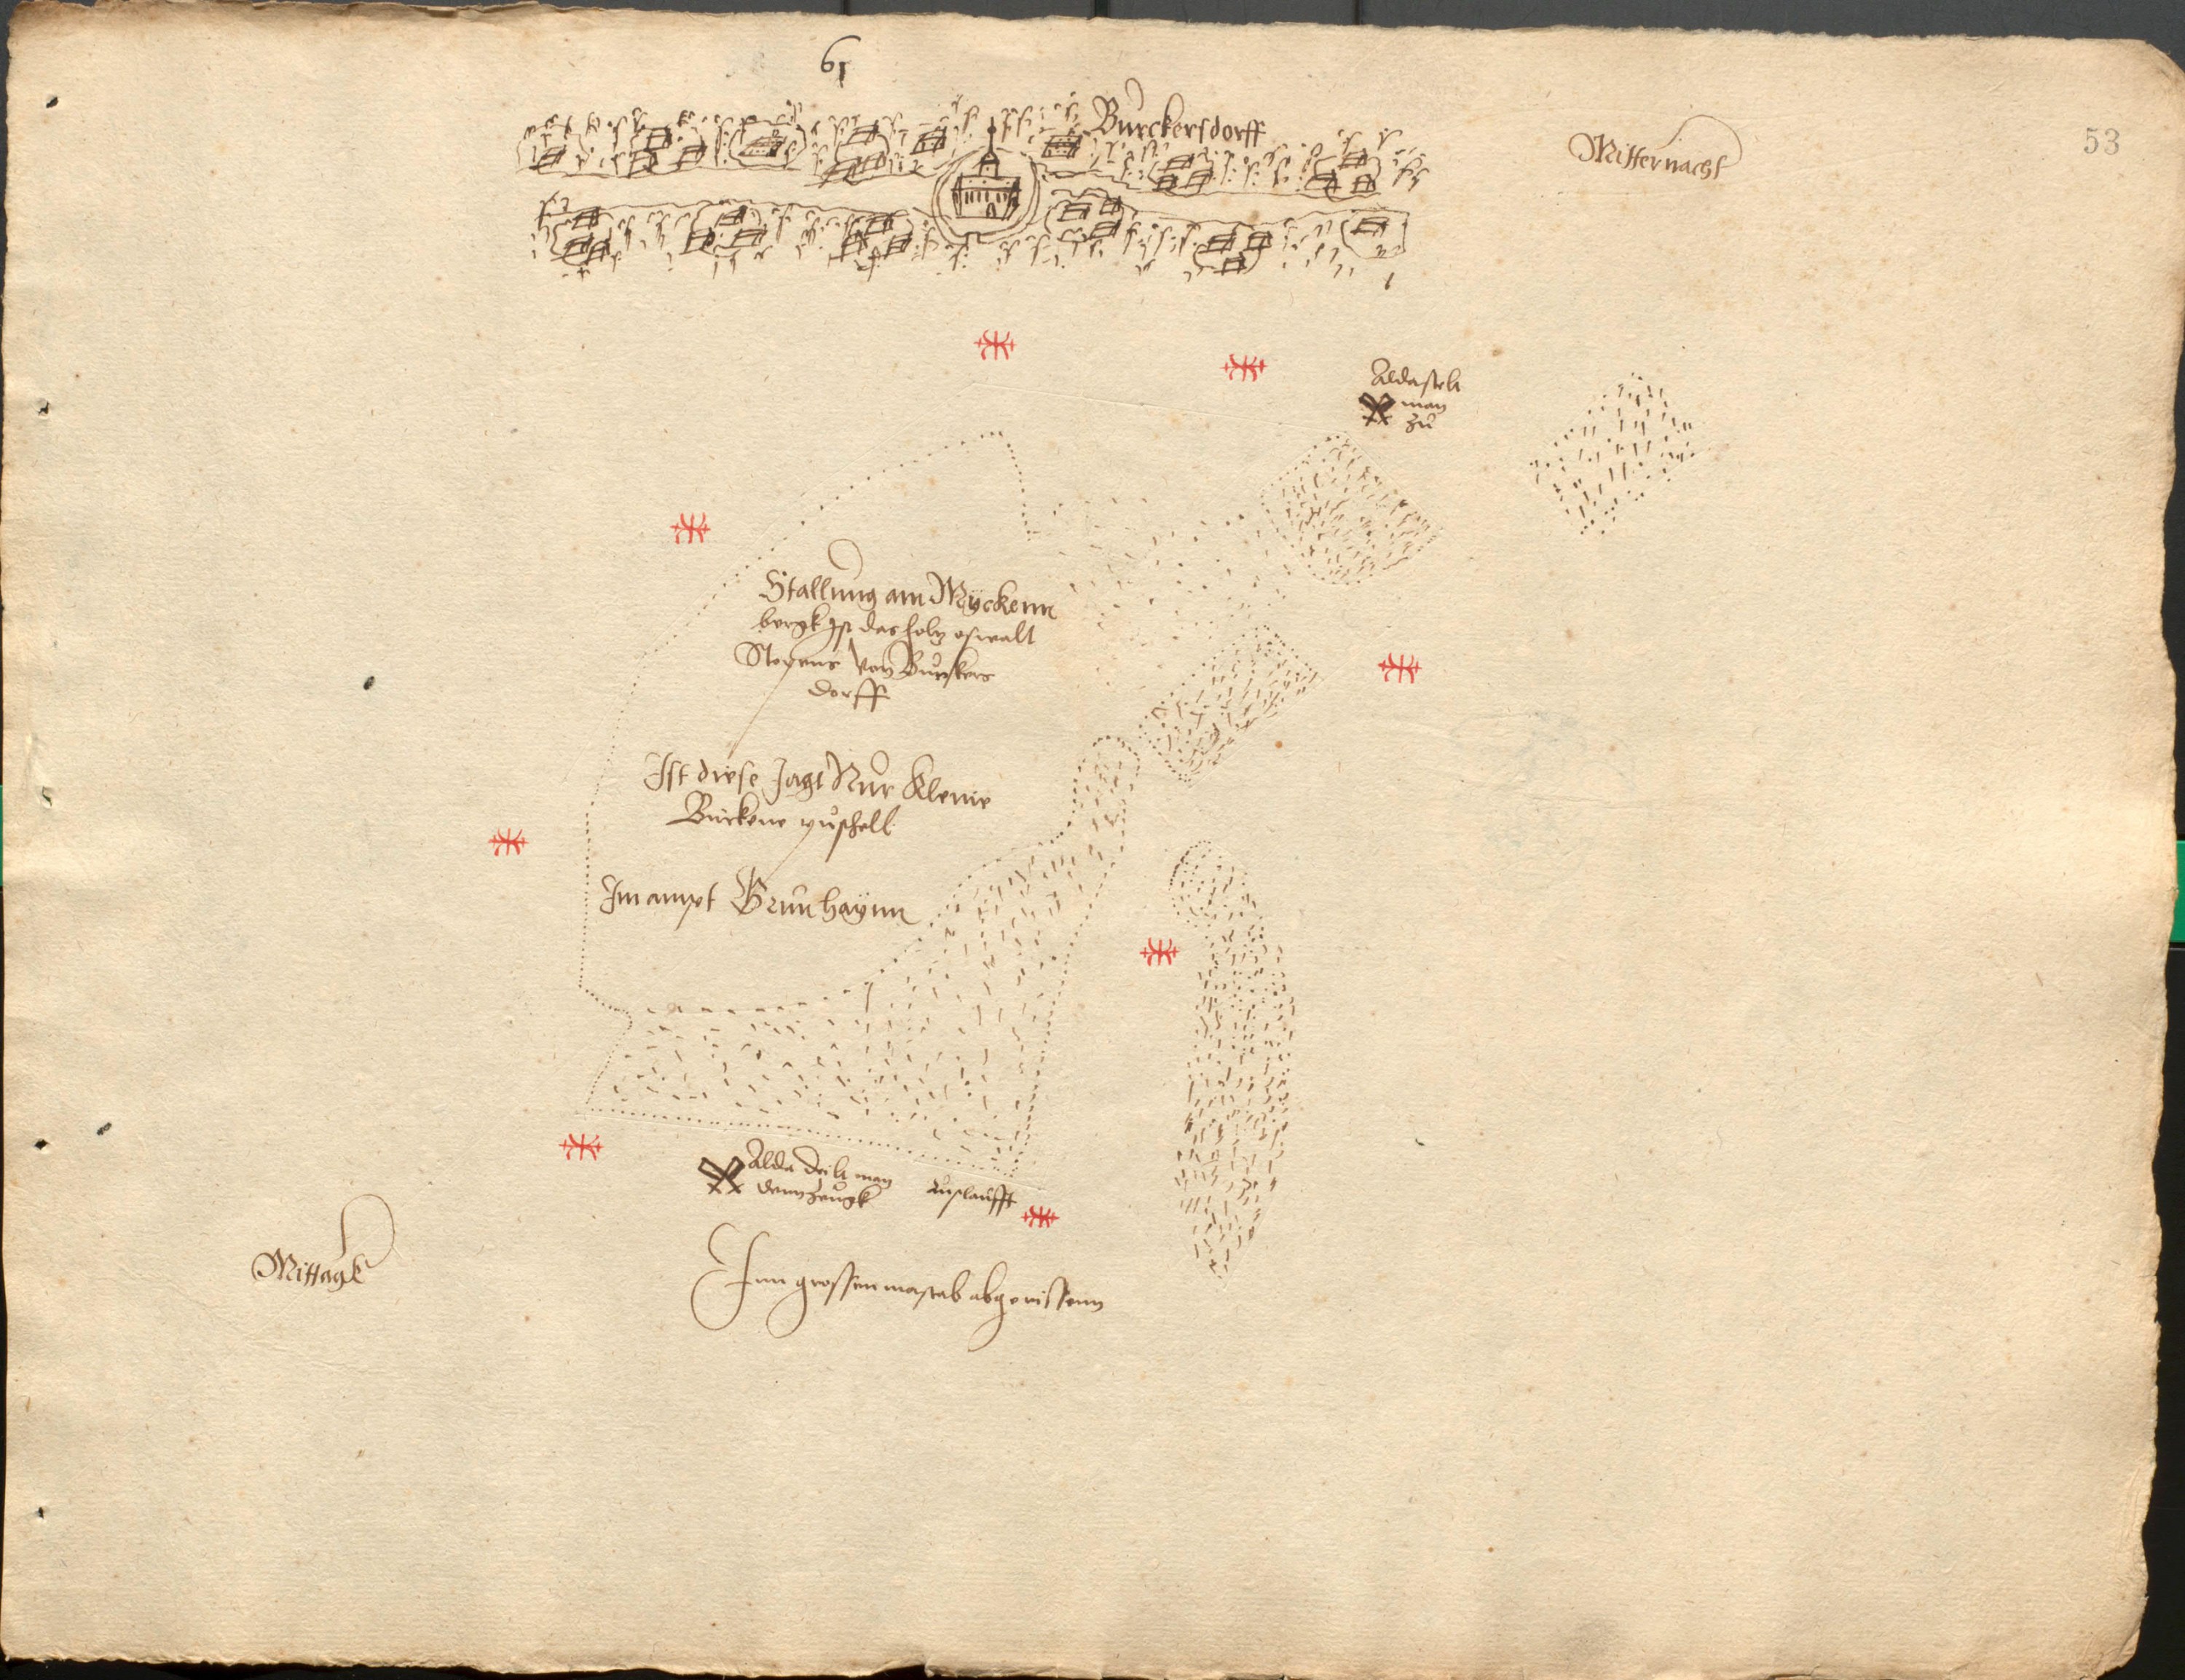 61
Burckersdorff
Mitternacht
53
Alda stelt
man
zu
Stallung am Myckenn
bergk Ist das holtz oswalt
Steyens von Burckers
dorff
Ist diese Jagt Nur Kleine
Birckene puschell
Im ampt Grunhaynn
Alda teilt man
denn Zeugk
Auslaufft
Mittagk
Inn grossen mastab abgerissenn